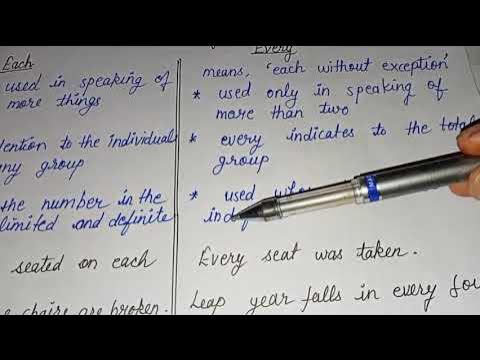 Each
used in speaking of
more things
to the individual
group
the number in the
limited and definite
seated on each
chairs are broken.
Every
means, 'each without exception'
* used only in speaking of
more than two
* every indicates to the total
group
* used
Every seat was taken.
Leap year falls in every